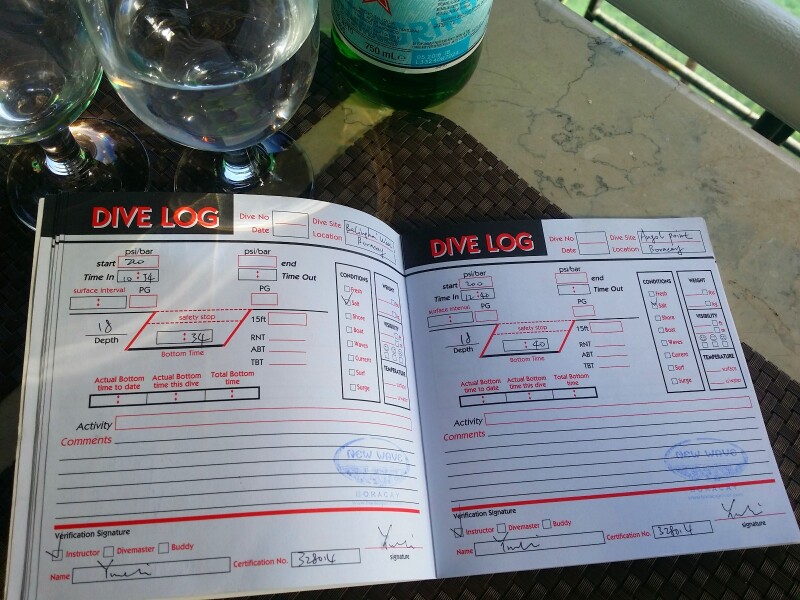 750 mL e
DIVE LOG
Dive No
Date
Dive Site
Location
Boracay
psi/bar
start 200
psi/bar
end
Time In 10 : 34
Time Out
surface interval
PG
PG
18
Depth
safety stop
: 34
Bottom Time
15ft
RNT
ABT
TBT
CONDITIONS
Fresh
Salt
Shore
Boat
Waves
Current
Surf
Surge
WEIGHT
VISIBILITY
TEMPERATURE
Actual Bottom time to date
Actual Bottom time this dive
Total Bottom time
Activity
Comments
NEW WAVE
BORACAY
Verification Signature
Instructor
Divemaster
Buddy
Name
Certification No. 328014
signature
DIVE LOG
Dive No
Date
Dive Site
Location
Angol Point
Boracay
psi/bar
start 200
psi/bar
end
Time In 12 : 40
Time Out
surface interval
PG
PG
18
Depth
safety stop
: 40
Bottom Time
15ft
RNT
ABT
TBT
CONDITIONS
Fresh
Salt
Shore
Boat
Waves
Current
Surf
Surge
WEIGHT
lbs
kg
VISIBILITY
ft
m
TEMPERATURE
surface
Actual Bottom time to date
Actual Bottom time this dive
Total Bottom time
Activity
Comments
NEW WAVE
BORACAY
Verification Signature
Instructor
Divemaster
Buddy
Name
Certification No. 328014
signature